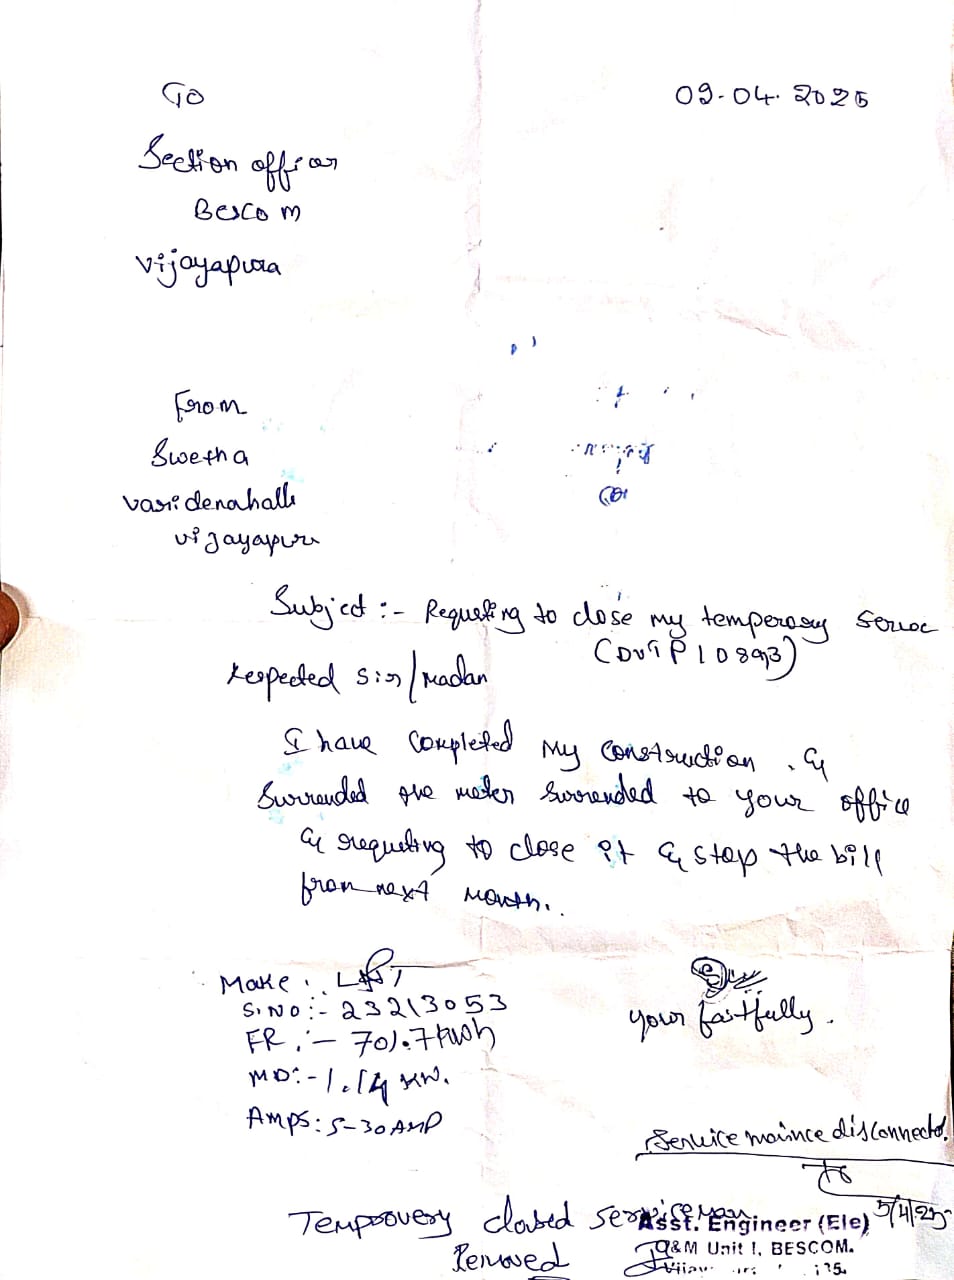 To
09.04.2025
Section officer
Bescom
Vijayapura
From
Swetha
vijayapur
Subject :- Requesting to close my temperory
(DVTP10893)
Respected Sir/Madan
I have completed my construction . &
Surrended the meter surrended to your office
& requesting to close it & stop the bill
from next month..
Make : L&T
S.No :- 23213053
FR :- 701.7 kwh
MD :- 1.14 KW.
Amps : 5-30 AMP
your faithfully.
Service maince disconnected.
5/4/25
Temprovery closed service
Removed
Asst. Engineer (Ele)
O&M Unit I, BESCOM.